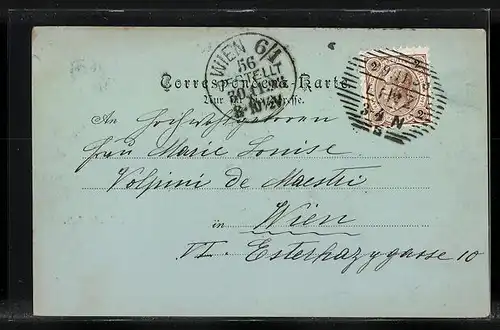 WIEN 6/1
56
BESTELLT
Correspondenz-Karte.
Nur für die Adresse.
An Hochwohlgeboren
Frau Marie Louise
Volpini de Maestri
in Wien
VI. Esterhazygasse 10